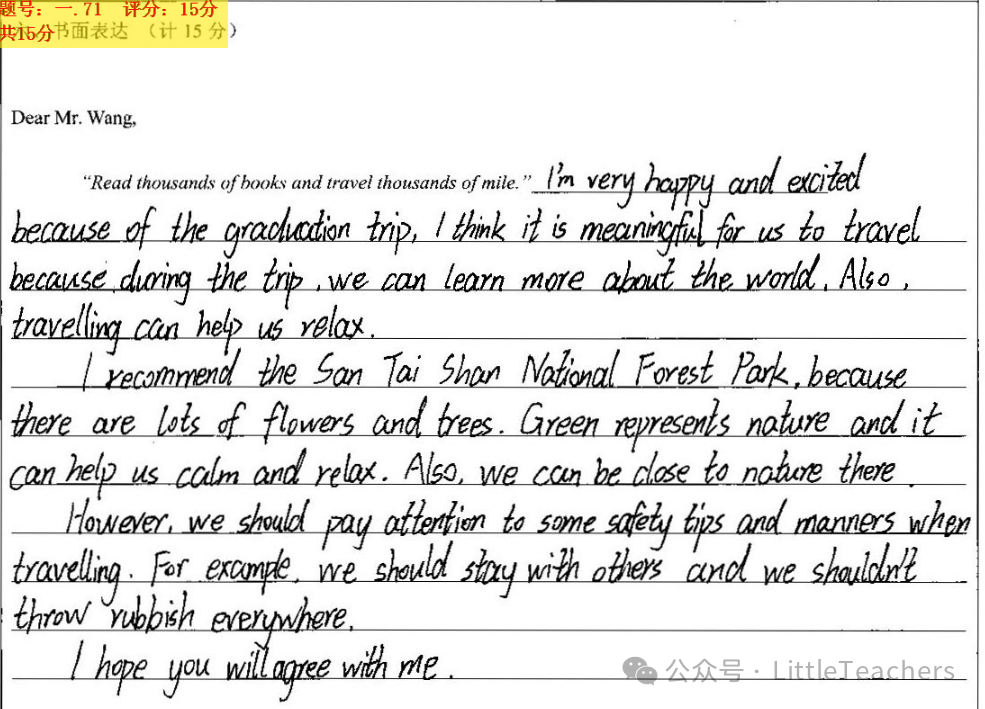 题号：一.71 评分：15分
共15分 书面表达 （计 15 分）
Dear Mr. Wang,
“Read thousands of books and travel thousands of mile.” I'm very happy and excited
because of the graduation trip, I think it is meaningful for us to travel
because during the trip, we can learn more about the world. Also,
travelling can help us relax.
I recommend the San Tai Shan National Forest Park, because
there are lots of flowers and trees. Green represents nature and it
can help us calm and relax. Also, we can be close to nature there.
However, we should pay attention to some safety tips and manners when
travelling. For example, we should stay with others and we shouldn't
throw rubbish everywhere.
I hope you will agree with me.
公众号 · LittleTeachers